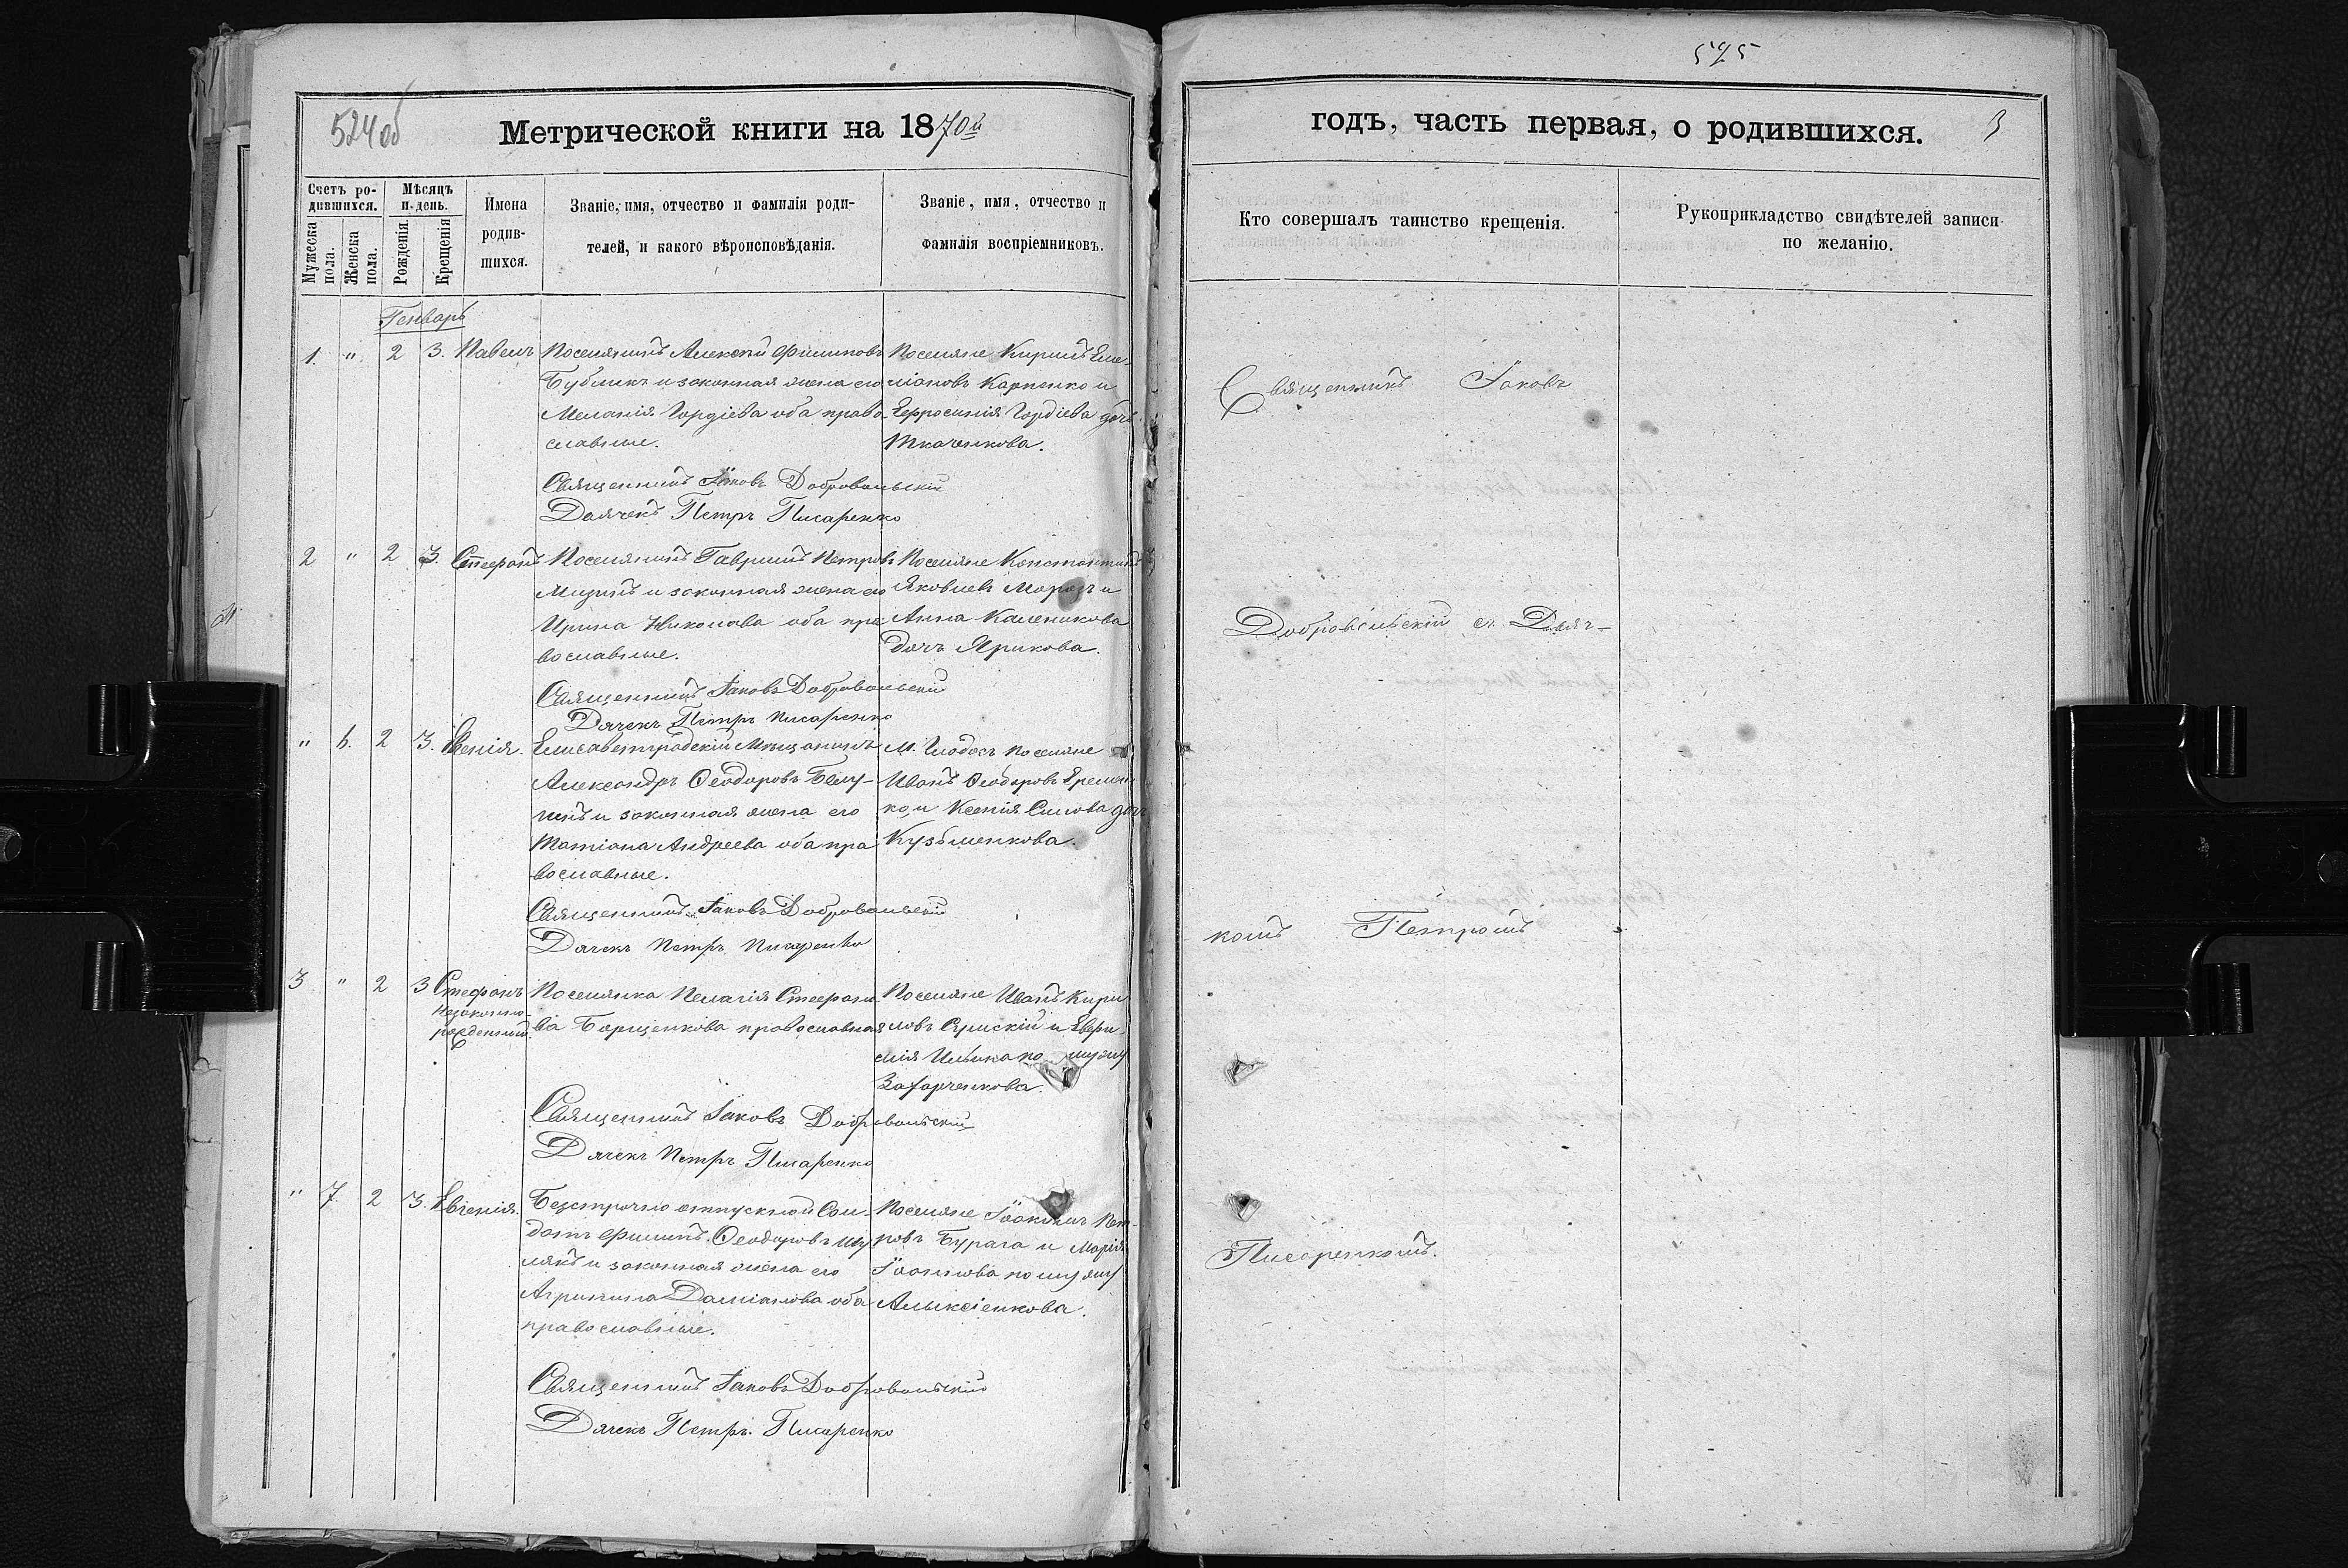 524 об
Метрической книги на 1870й
Счетъ родившихся.
Мужеска пола.
Женска пола.
Мѣсяцъ и день.
Рожденія.
Крещенія
Имена родившихся.
Званіе, имя, отчество и фамилія родителей, и какого вѣроисповѣданія.
Званіе, имя, отчество и фамилія воспріемниковъ.
Генварь
1. " 2 3. Павелъ
Поселянинъ Алексѣй Филиповъ
Бубликъ и законная жена его
Меланія Гордіева оба право-
славные.
Поселяне Кирилъ Еме-
ліановъ Карпенко и
Гордіева дочь
Ткаченкова.
Священникъ Іаковъ Добровольскій
Дьячекъ Петръ Писаренко
2 " 2 3. Стефанъ
Поселянинъ Гавриилъ Петровъ
и законная жена его
Ирина Николаева оба пра-
вославные.
Поселяне Константинъ
Яковлевъ Морозъ и
Анна Каленикова
дочь Ярикова.
Священникъ Іаковъ Добровольскій
Дячекъ Петръ Писаренко
" 6. 2 3. Ксенія.
Елисаветградскій Мѣщанинъ
Александръ Ѳеодоровъ Бѣлу-
и законная жена его
Татіана Андреева оба пра
вославные.
М. Глодосъ поселяне
Иванъ Ѳеодоровъ Яремен
ко, и Ксенія Силова доч
Кузьменкова.
Священникъ Іаковъ Добровольскій
Дячекъ Петръ Писаренко
3 " 2 3 Стефанъ
незаконно-
рожденный.
Поселянка Пелагія Стефано
ва Борщенкова православная
Поселяне Иванъ Кири
ловъ Сумскій и
по мужу
Захарченкова.
Священникъ Іаковъ Добровольскій
Дячекъ Петръ Писаренко
" 7. 2 3. Евгенія.
Безсрочно отпускной Сол-
датъ Филипъ Ѳеодоровъ
и законная жена его
Агрипина Даміанова оба
православные.
Поселяне Іоакимъ Пет-
ровъ Бурага и Марія
Іоаннова по мужу
Алексіенкова.
Священникъ Іаковъ Добровольскій
Дячекъ Петръ Писаренко
525
годъ, часть первая, о родившихся.
3
Кто совершалъ таинство крещенія.
Рукоприкладство свидѣтелей записи по желанію.
Священникъ Іаковъ
Добровольскій съ Дьяч-
комъ Петромъ
Писаренкомъ.